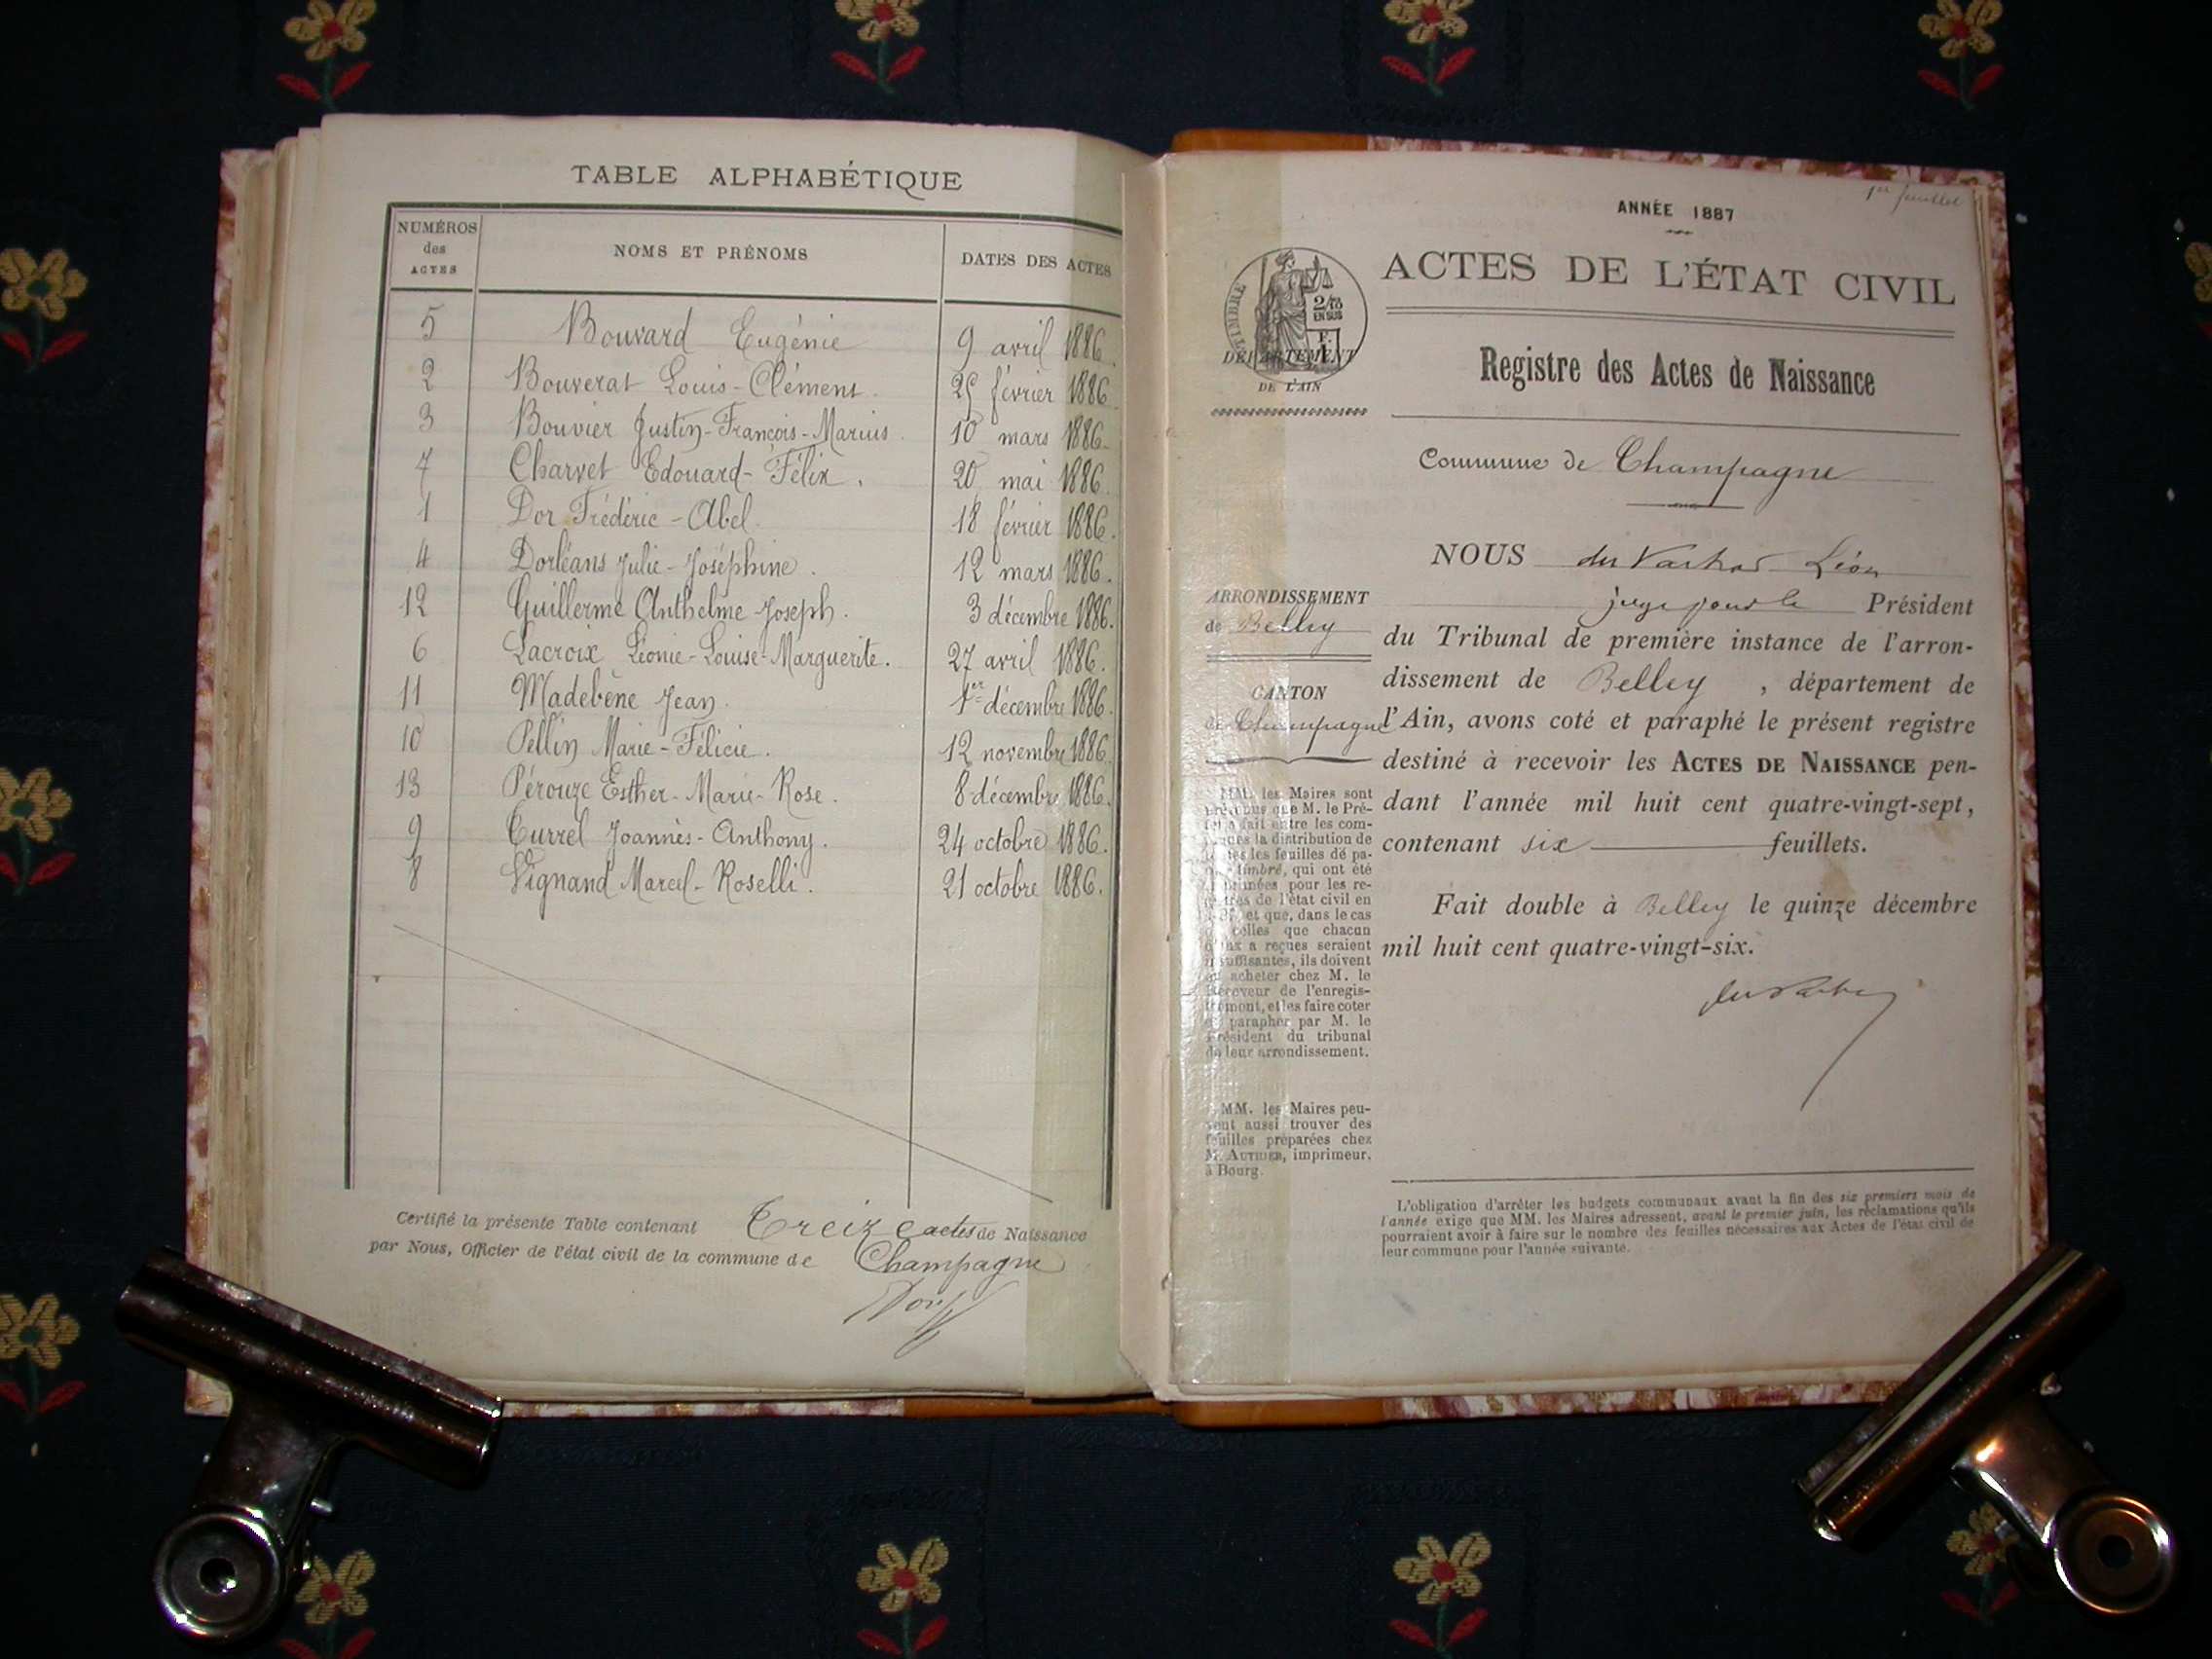 TABLE ALPHABÉTIQUE
NUMÉROS des ACTES
NOMS ET PRÉNOMS
DATES DES ACTES
5 Bouvard Eugénie 9 avril 1886
2 Bouverat Louis-Clément. 25 février 1886
3 Bouvier Justin-François-Marius. 10 mars 1886
7 Charvet Edouard-Félix. 20 mai 1886.
1 Dor Frédéric-Abel. 18 février 1886.
4 Dorléans Julie-Joséphine. 12 mars 1886.
12 Guillerme Anthelme-Joseph. 3 décembre 1886.
6 Lacroix Léonie-Louise-Marguerite. 27 avril 1886.
11 Madebène Jean. 1er décembre 1886.
10 Pellin Marie-Félicie. 12 novembre 1886.
13 Pérouze Esther-Marie-Rose. 8 décembre 1886.
9 Currel Joannès-Anthony. 24 octobre 1886.
8 Vignand Marcel-Roselli. 21 octobre 1886.
Certifié la présente Table contenant Treize actes de Naissance
par Nous, Officier de l'état civil de la commune de Champagne
1er feuillet
ANNÉE 1887
TIMBRE
2/10
EN SUS
DÉPARTEMENT
DE L'AIN
ACTES DE L'ÉTAT CIVIL
Registre des Actes de Naissance
Commune de Champagne
ARRONDISSEMENT
de Belley
CANTON
de Champagne
MM. les Maires sont
prévenus que M. le Pré-
fet a fait entre les com-
munes la distribution de
toutes les feuilles de pa-
pier timbré, qui ont été
imprimées pour les re-
gistres de l'état civil en
et que, dans le cas
où celles que chacun
d'eux a reçues seraient
insuffisantes, ils doivent
en acheter chez M. le
Receveur de l'enregis-
trement, et les faire coter
et parapher par M. le
Président du tribunal
de leur arrondissement.
MM. les Maires peu-
vent aussi trouver des
feuilles préparées chez
M. AUTHIER, imprimeur,
à Bourg.
NOUS Léon
Président
du Tribunal de première instance de l'arron-
dissement de Belley, département de
l'Ain, avons coté et paraphé le présent registre
destiné à recevoir les ACTES DE NAISSANCE pen-
dant l'année mil huit cent quatre-vingt-sept,
contenant six feuillets.
Fait double à Belley le quinze décembre
mil huit cent quatre-vingt-six.
L'obligation d'arrêter les budgets communaux avant la fin des six premiers mois de
l'année exige que MM. les Maires adressent, avant le premier juin, les réclamations qu'ils
pourraient avoir à faire sur le nombre des feuilles nécessaires aux Actes de l'état civil de
leur commune pour l'année suivante.